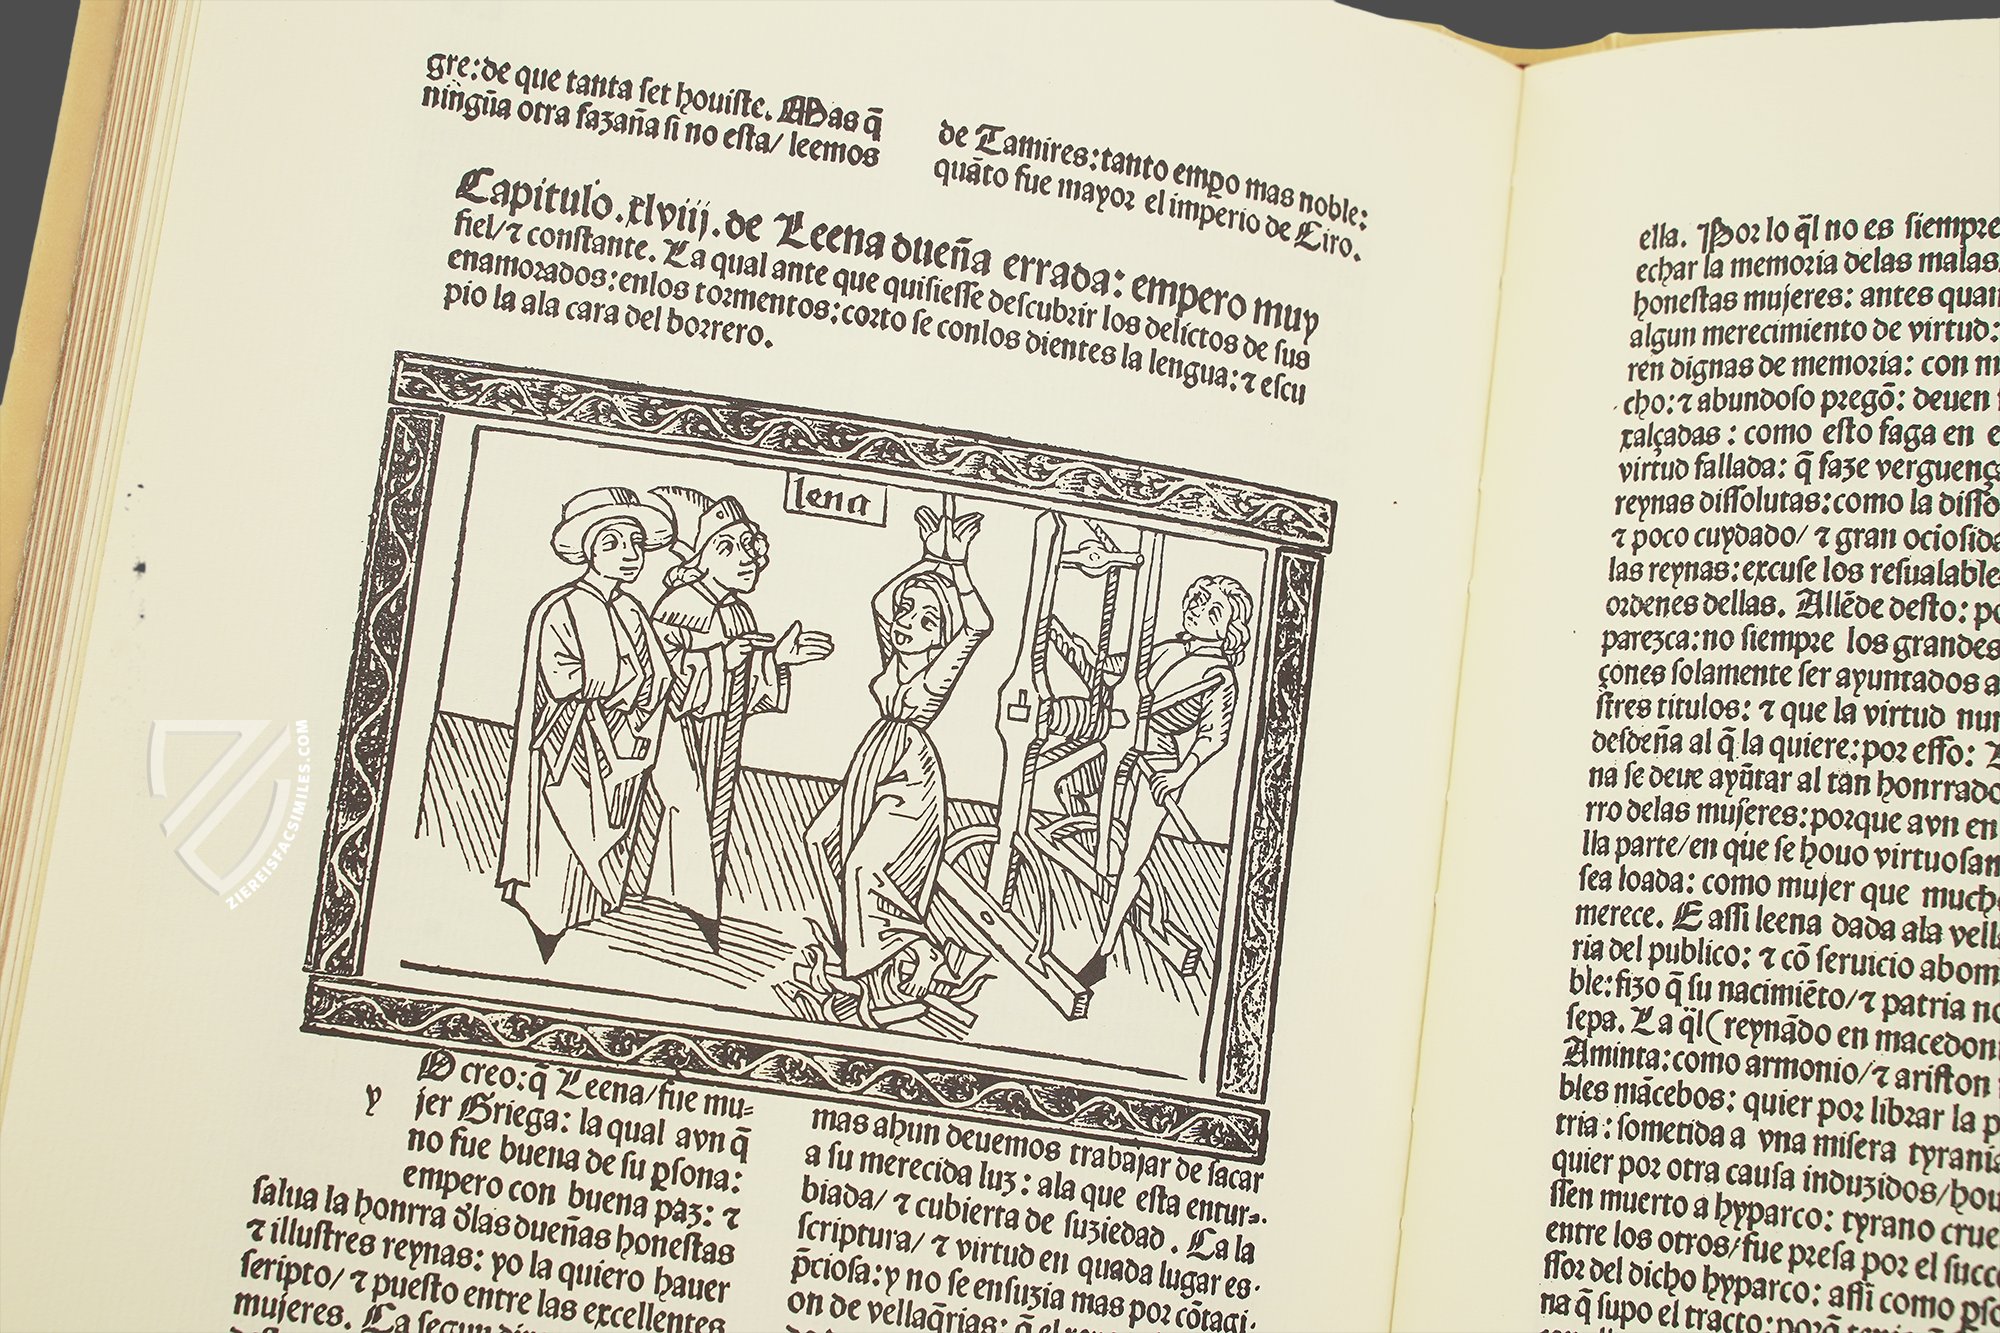 gre:de que tanta set houiste. Mas q̄
ningūa otra fazaña si no esta/ leemos
de Tamires:tanto empo mas noble:
quāto fue mayor el imperio de Ciro.
Capitulo.xlviij.de Leena dueña errada: empero muy
fiel/⁊ constante. La qual ante que quisiesse descubrir los delictos de sus
enamorados:enlos tormentos:corto se conlos dientes la lengua:⁊ escu
pio la ala cara del borrero.
lena
y
O creo:q̄ Leena/fue mu-
jer Griega: la qual avn q̄
no fue buena de su ꝑsona:
empero con buena paz: ⁊
salua la honrra d̄las dueñas honestas
⁊ illustres reynas: yo la quiero hauer
scripto/ ⁊ puesto entre las excellentes
mujeres. La segun
mas ahun deuemos trabajar de sacar
a su merecida luz: ala que esta entur-
biada/ ⁊ cubierta de suziedad. Ca la
scriptura/ ⁊ virtud en quada lugar es
p̄ciosa:y no se ensuzia mas por cōtagi-
on de vellaq̄rias: q̄ el
ella. Por lo q̄l no es siempre
echar la memoria delas malas
honestas mujeres: antes quan
algun merecimiento de virtud:
ren dignas de memoria: con m
cho:⁊ abundoso pregō: deuen
xalçadas: como esto faga en e
virtud fallada: q̄ faze verguenç
reynas dissolutas:como la disso
⁊ poco cuydado/ ⁊ gran ociosida
las reynas:excuse los resualable
ordenes dellas. Allēde desto: po
parezca:no siempre los grandes
çones solamente ser ayuntados a
stres titulos: ⁊ que la virtud nun
desdeña al q̄ la quiere:por esso: L
na se deue ayūtar al tan honrrado
rro delas mujeres:porque avn en
lla parte/en que se houo virtuosam
sea loada: como mujer que much
merece. E assi leena dada ala vell
ria del publico: ⁊ cō seruicio abom
ble:fizo q̄ su nacimiēto/⁊ patria no
sepa. La q̄l (reynādo en macedon
Aminta:como armonio/⁊ ariston
bles mācebos: quier por librar la p
tria: sometida a vna misera tyrania
quier por otra causa induzidos/hou
ssen muerto a hyparco: tyrano crue
entre los otros/fue presa por el succ
ssor del dicho hyparco: assi como ꝑso
na q̄ supo el tracto:porq̄
ZIEREISFACSIMILES.COM